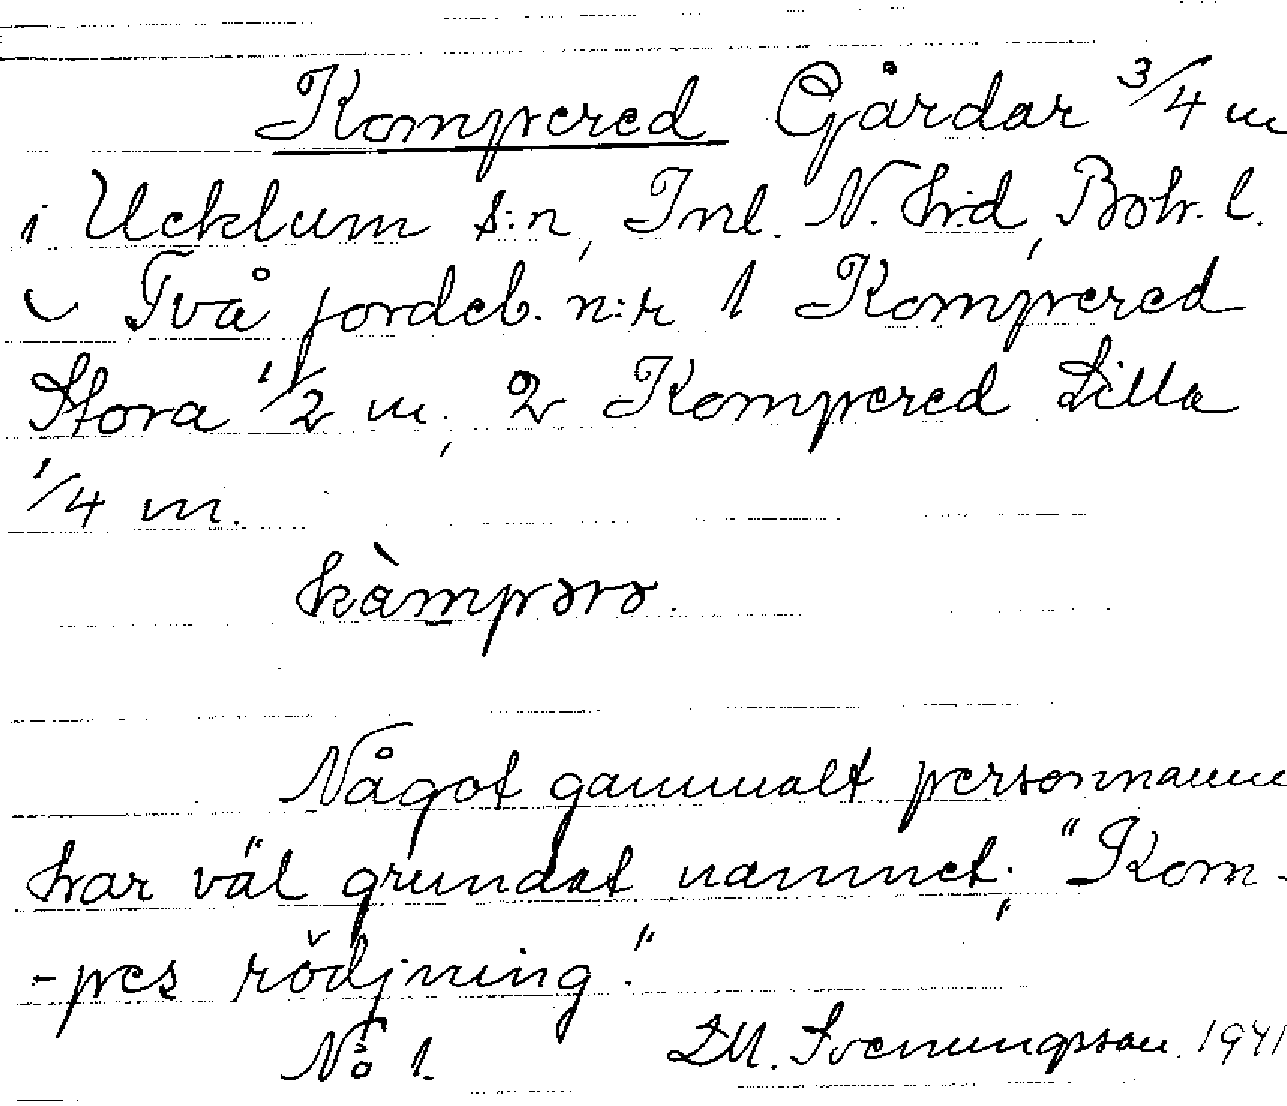 Kompered Gårdar 3/4 m
i Ucklum s:n, Inl. N. hrd, Boh. l.
Två jordeb. n:r 1 Kompered
Stora 1/2 m, 2 Kompered Lilla
1/4 m.
kàmpərə.
Något gammalt personnamn
har väl grundat namnet; "Kom-
-pes rödjning."
No 1. D.M. Svenungsson. 1941